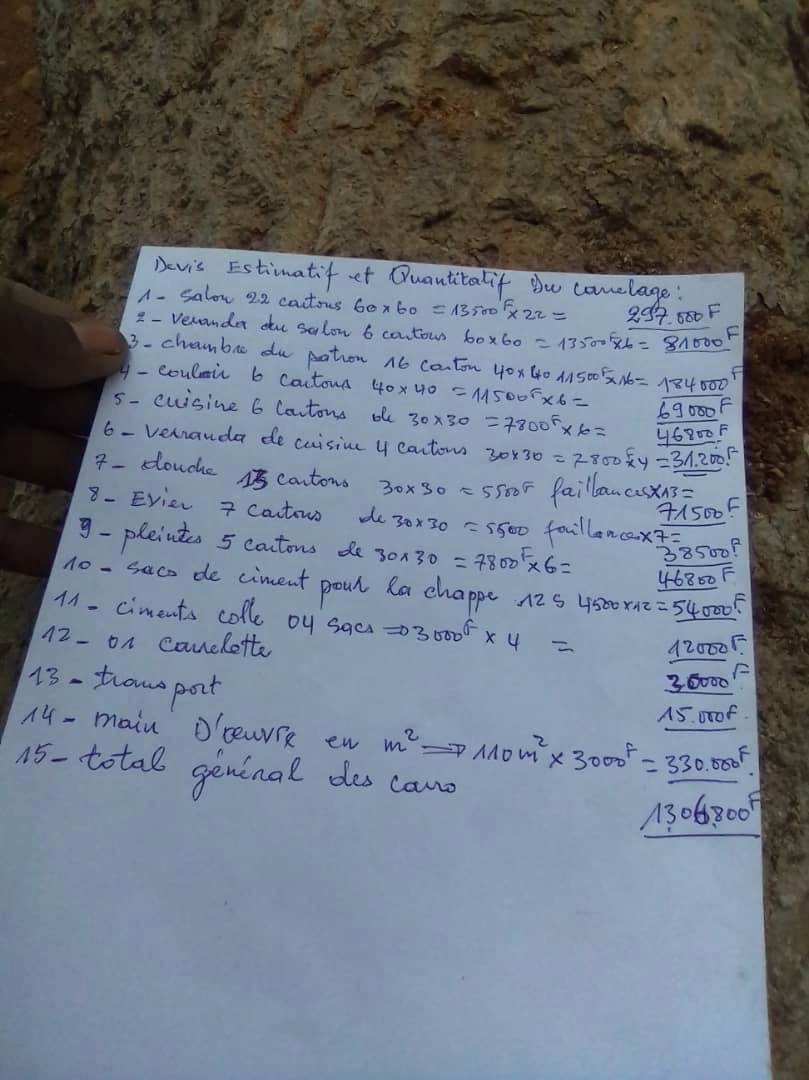 Devis Estimatif et Quantitatif Du carrelage :
1 - Salon 22 cartons 60x60 = 13500F x 22 = 297.000F
2 - Veranda du salon 6 cartons 60x60 = 13500F x 6 = 81000F
3 - chambre du patron 16 carton 40x40 11500F x 16 = 184000F
4 - couloir 6 cartons 40x40 = 11500F x 6 = 69000F
5 - cuisine 6 cartons de 30x30 = 7800F x 6 = 46800F
6 - Verranda de cuisine 4 cartons 30x30 = 7800F x 4 = 31.200F
7 - douche 13 cartons 30x30 = 5500F faillances x 13 = 71500F
8 - Evier 7 cartons de 30x30 = 5500 faillances x 7 = 38500F
9 - pleintes 5 cartons de 30x30 = 7800F x 6 = 46800F
10 - sacs de ciment pour la chappe 12 S 4500 x 12 = 54000F
11 - ciments colle 04 sacs => 3000F x 4 = 12000F
12 - 01 carrelette 30000F
13 - transport 15.000F
14 - main D'œuvre en m² => 110m² x 3000F = 330.000F
15 - total général des carro 1.306.800F